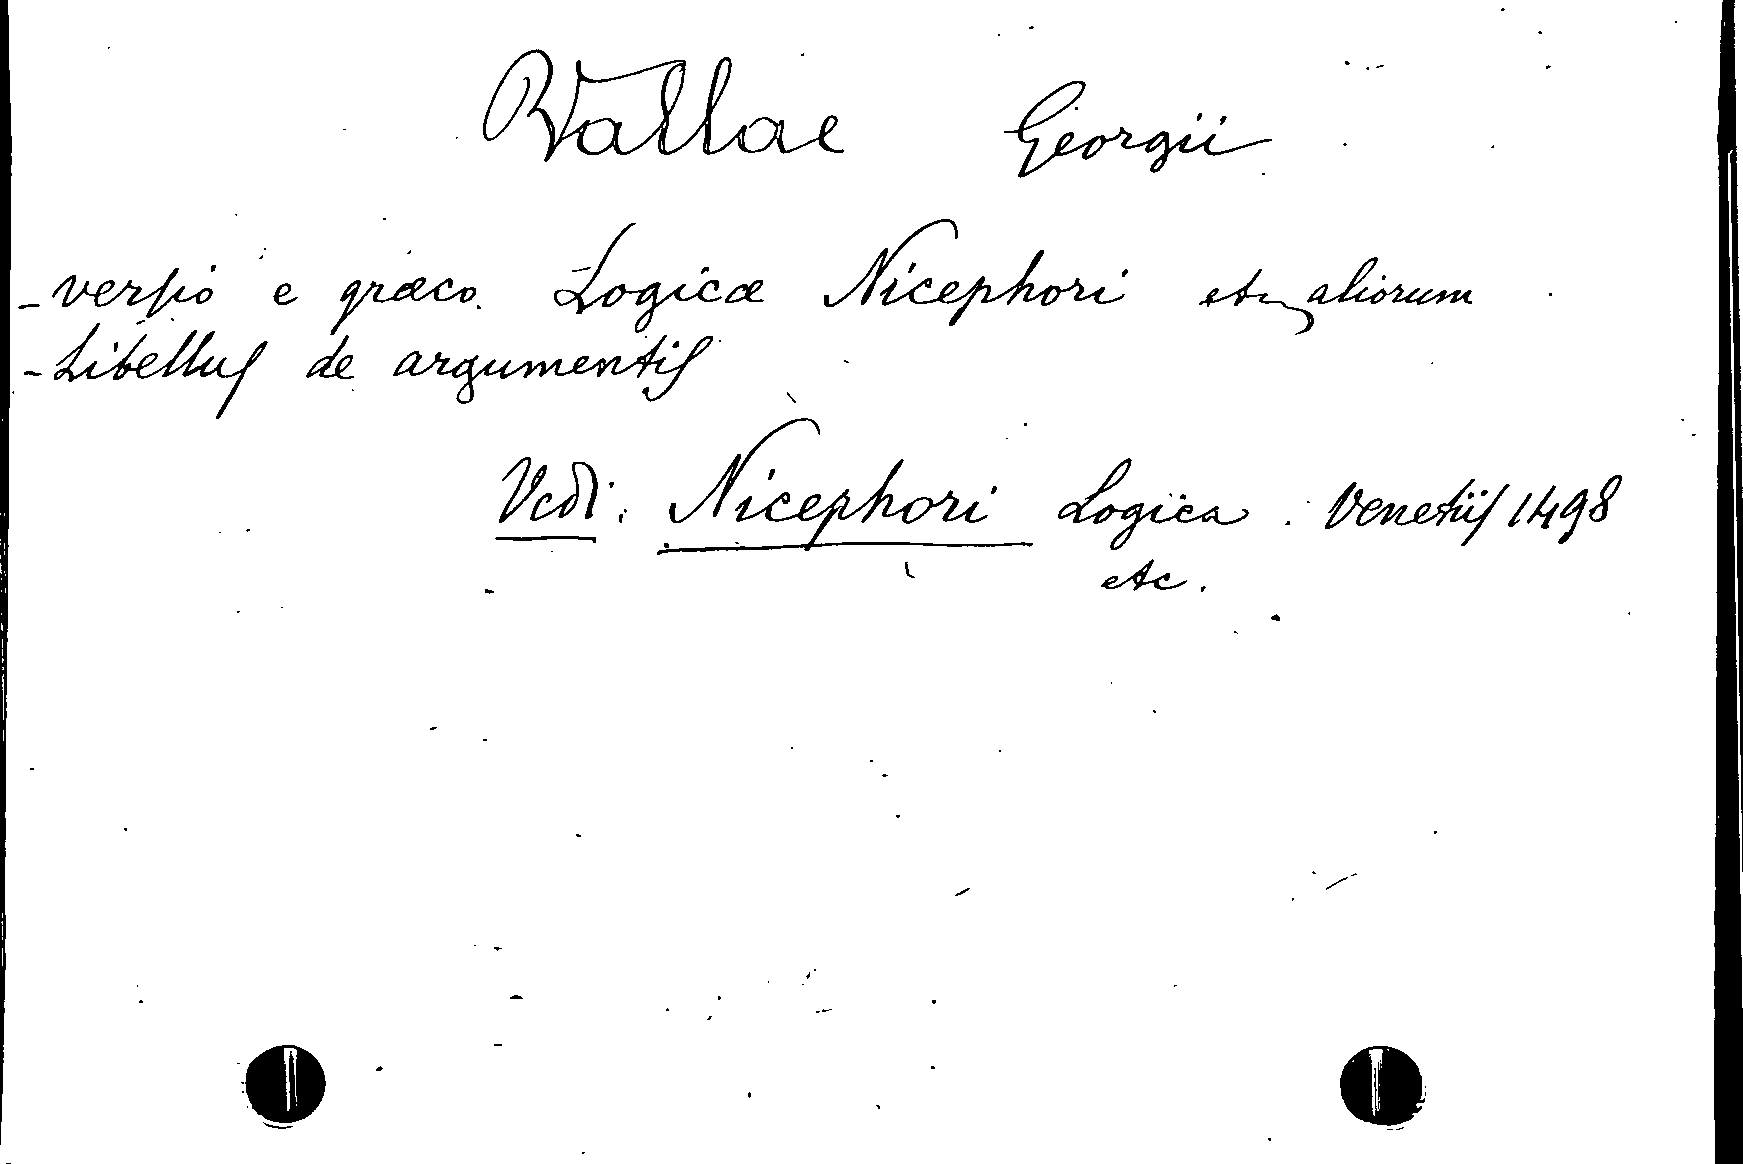 Vallae Georgii
- versio e græco Logicæ Nicephori et aliorum
- Libellus de argumentis
Vedi: Nicephori Logica. Venetiis 1498
etc.